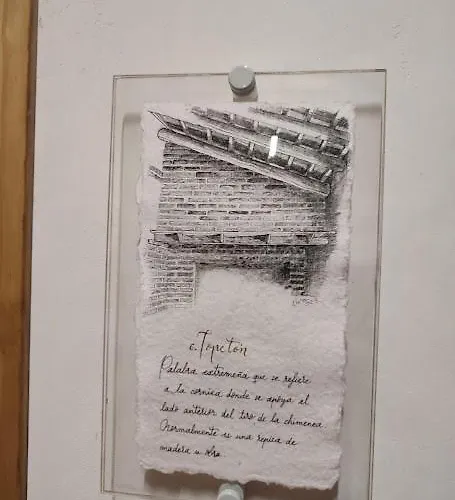 c. Topetón
Palabra extremeña que se refiere
a la cornisa donde se apoya el
lado anterior del tiro de la chimenea.
Normalmente es una repisa de
madera u obra.